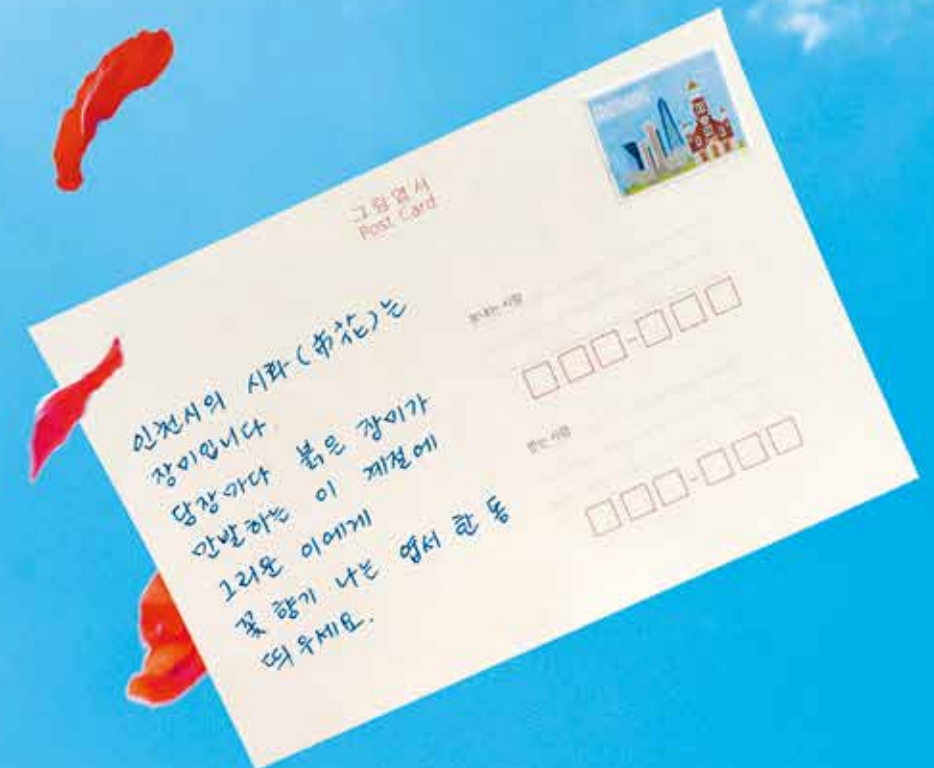 그림엽서
Post Card
인천시의 시화(市花)는
장미입니다.
담장마다 붉은 장미가
만발하는 이 계절에
그리운 이에게
꽃 향기 나는 엽서 한 통
띄우세요.
보내는 사람
받는 사람